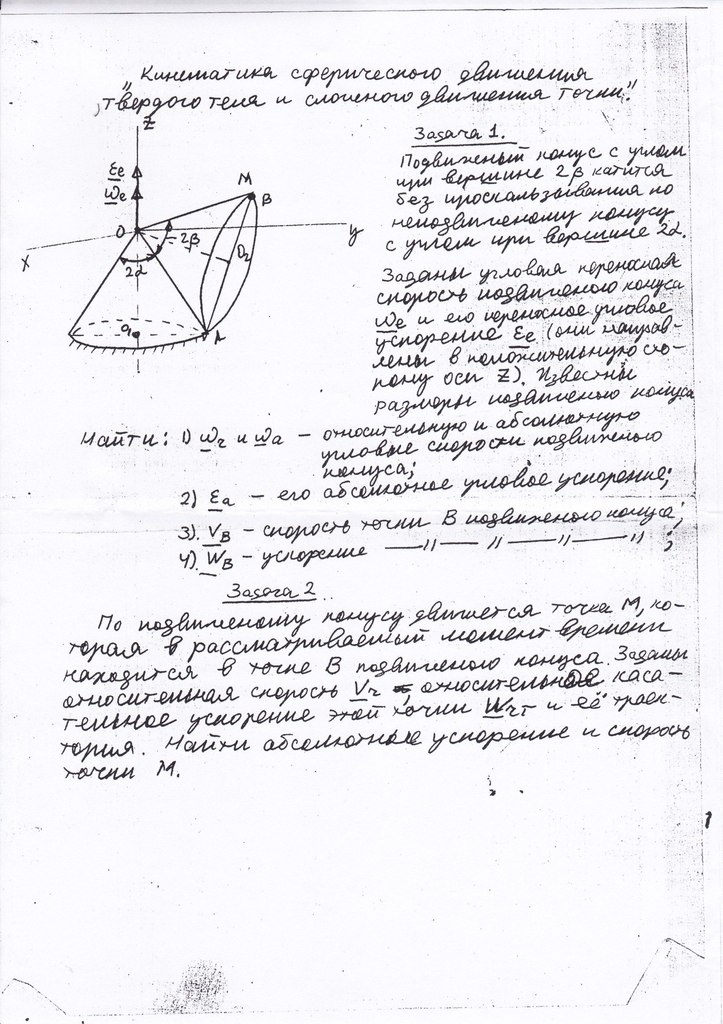 „Кинематика сферического движения
твердого тела и сложного движения точки".
Z
Задача 1.
Подвижный конус с углом
при вершине 2β катится
без проскальзывания по
неподвижному конусу
с углом при вершине 2α.
εe
ωe
M
B
O
2β
y
x
2α
O2
O1
A
Заданы угловая переносная
скорость подвижного конуса
ωe и его переносное угловое
ускорение εe (они направ-
лены в положительную сто-
рону оси Z). Известны
размеры подвижного конуса
Найти: 1) ωr и ωa – относительную и абсолютную
угловые скорости подвижного
конуса;
2) εa – его абсолютное угловое ускорение;
3). VB – скорость точки B подвижного конуса;
4). WB – ускорение —〃— 〃 —〃— 〃 ;
Задача 2
По подвижному конусу движется точка M, ко-
торая в рассматриваемый момент времени
находится в точке B подвижного конуса. Заданы
относительная скорость Vr, относительное каса-
тельное ускорение этой точки Wrτ и её траек-
тория. Найти абсолютные ускорение и скорость
точки M.
1